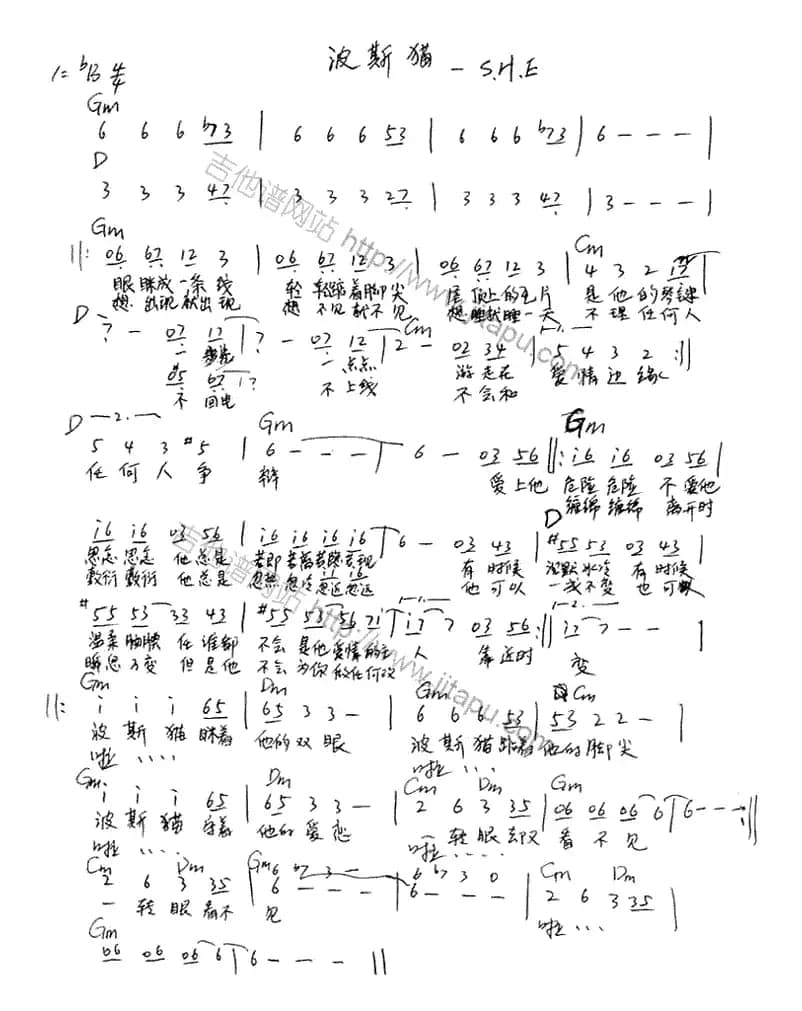 波斯猫 - S.H.E
1=ᵇB 4/4
Gm
6 6 6 ᵇ7 3 | 6 6 6 5 3 | 6 6 6 ᵇ7 3 | 6 - - - |
D
3 3 3 4 7 | 3 3 3 2 7 | 3 3 3 4 7 | 3 - - - |
Gm Cm
||: 06 67 12 3 | 06 67 12 3 | 06 67 12 3 | 4 3 2 17 |
眼睐成一条线 轻轻踮着脚尖 屋顶上的瓦片 是他的琴键
想出现就出现 想不见就不见 想睡就睡一天 不理任何人
D Cm
7 - 07 12 | 7 - 07 12 | 2 - 02 34 | 5 4 3 2 :||
一步步 一点点 游走在 爱情边缘
#05 67 | 7
不回电 不上线 不会和
D 2. Gm Gm
5 4 3 #5 | 6 - - - | 6 - 03 56 ||: i6 i6 03 56 |
任何人争 辩 爱上他 危险危险 不爱他
缠绵缠绵 离开时
D
i6 i6 03 56 | i6 i6 i6 i6 | 6 - 03 43 | #55 53 03 43 |
怨念怨念 他总是 若即若离若隐若现 有时候 沉默冰冷 有时候
敷衍敷衍 他总是 忽热忽冷忽近忽远 他可以 一成不变 也可以
1. 2.
#55 53 33 43 | #55 53 56 71 | i7 7 03 56 :|| i7 7 - - |
温柔腼腆 任谁都 不会是他爱情的主 人 靠近时 变
瞬息万变 但是他 不会为你做任何改
Gm Dm Gm Cm
||: i i i 65 | 65 3 3 - | 6 6 6 53 | 53 2 2 - |
波斯猫眯着 他的双眼 波斯猫踮着 他的脚尖
啦.... 啦....
Gm Dm Cm Dm Gm
i i i 65 | 65 3 3 - | 2 6 3 35 | 06 06 06 6 | 6 - - - :||
波斯猫守着 他的爱恋 一转眼却又 看不见
啦.... 啦....
Cm Dm Gm 6 ᵇ7 3 - 6 ᵇ7 3 0 Cm Dm
2 6 3 35 | 6 - - - | 6 - - - | 2 6 3 35 |
一转眼看不 见 啦...
Gm
06 06 06 6 | 6 - - - ||
吉他谱网站 http://www.jitapu.com
吉他谱网站 http://www.jitapu.com